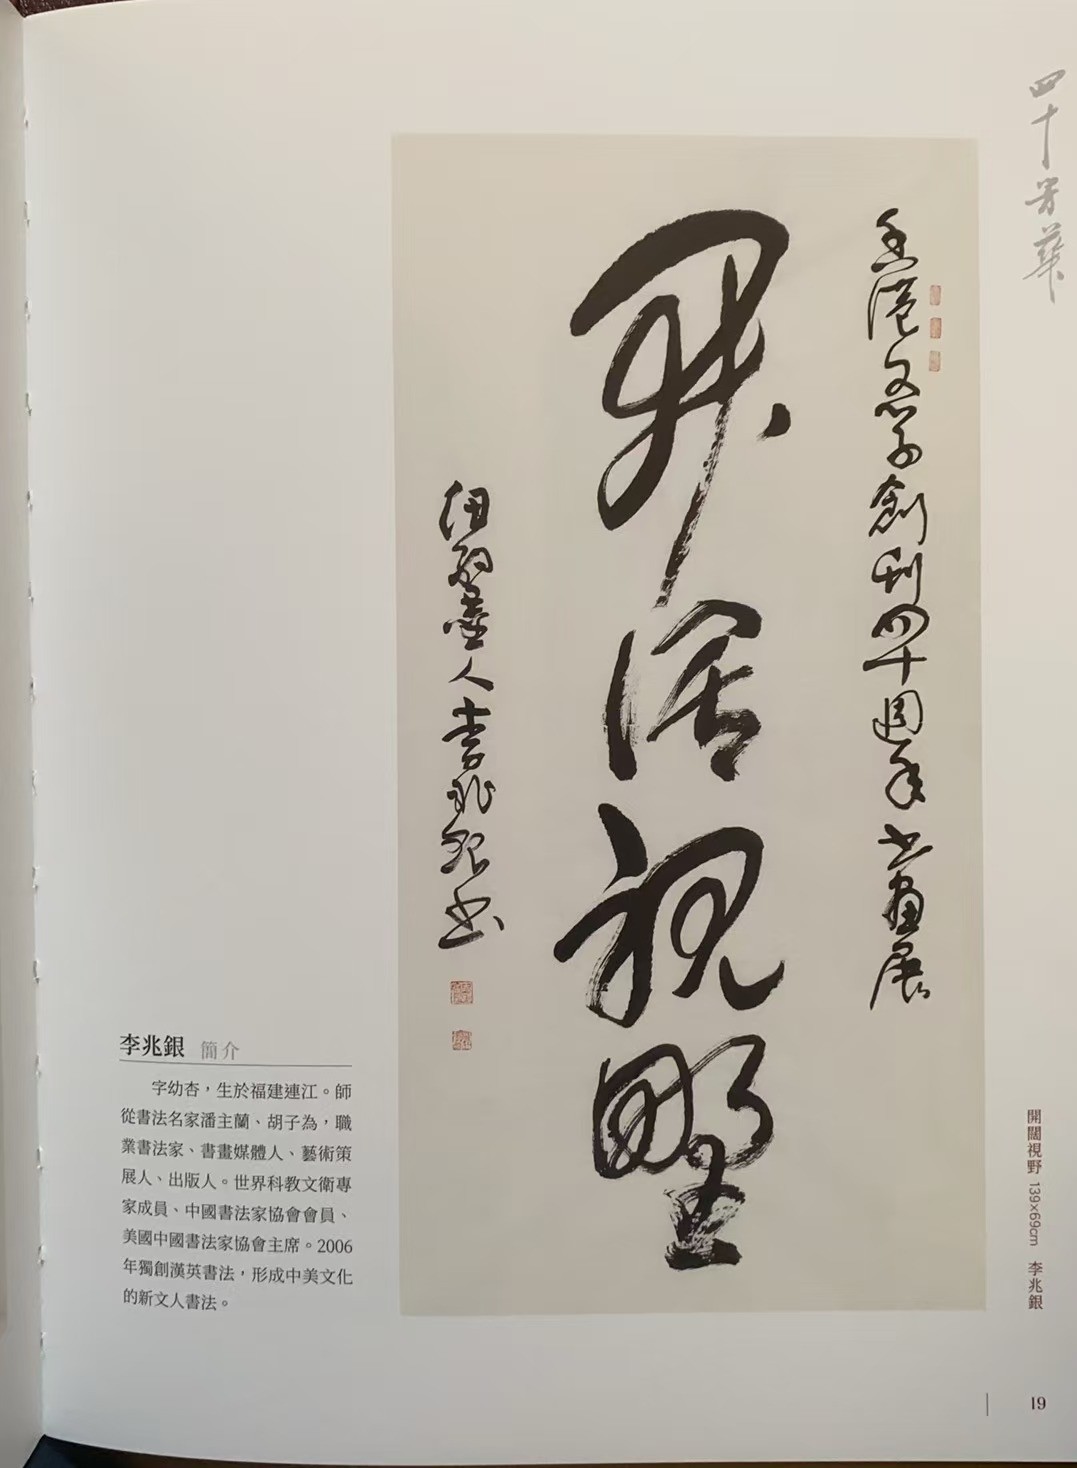 四十芳華
香港文學創刊四十週年書畫展
開闊視野
紐約 人李兆銀書
李兆銀 簡介
字幼杏，生於福建連江。師
從書法名家潘主蘭、胡子為，職
業書法家、書畫媒體人、藝術策
展人、出版人。世界科教文衛專
家成員、中國書法家協會會員、
美國中國書法家協會主席。2006
年獨創漢英書法，形成中美文化
的新文人書法。
開闊視野 139×69cm 李兆銀
19